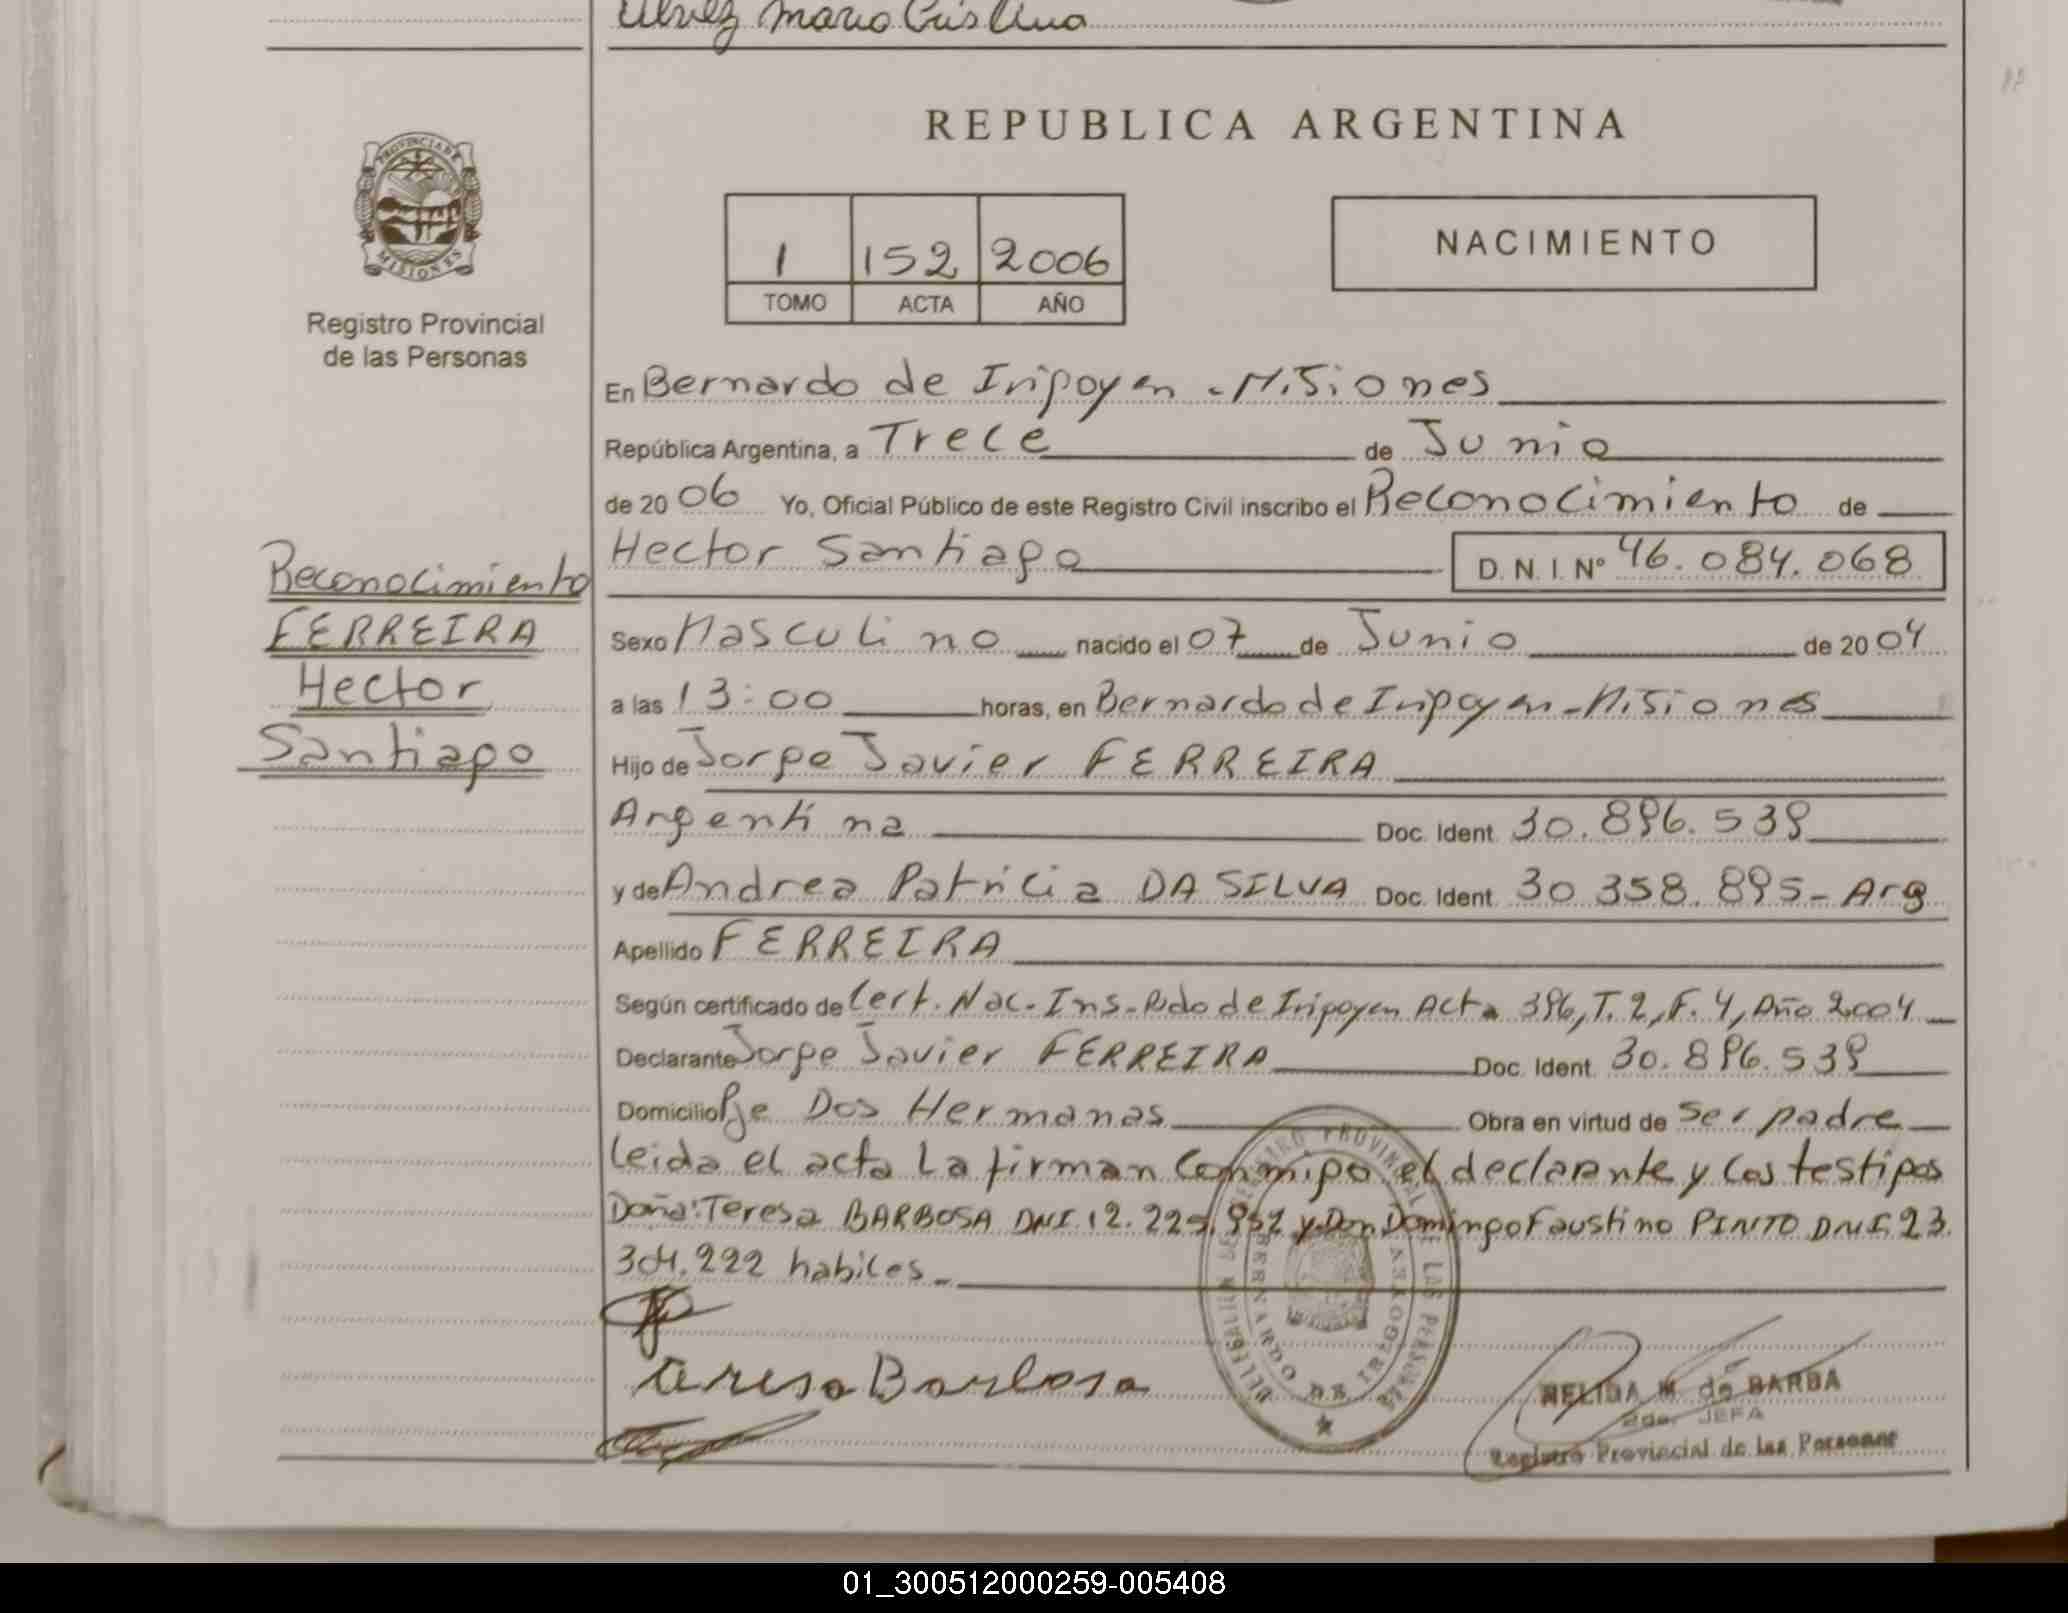 Alvez Maria Cristina
REPUBLICA ARGENTINA
PROVINCIA DE
MISIONES
Registro Provincial
de las Personas
1 152 2006
TOMO ACTA AÑO
NACIMIENTO
En Bernardo de Irigoyen - Misiones
República Argentina, a Trece de Junio
de 20 06 Yo, Oficial Público de este Registro Civil inscribo el Reconocimiento de
Hector Santiago D.N.I. Nº 46.084.068
Reconocimiento
FERREIRA
Hector
Santiago
Sexo Masculino nacido el 07 de Junio de 20 04
a las 13:00 horas, en Bernardo de Irigoyen - Misiones
Hijo de Jorge Javier FERREIRA
Argentina Doc. Ident. 30.896.539
y de Andrea Patricia DA SILVA Doc. Ident. 30 358.895 - Arg
Apellido FERREIRA
Según certificado de Cert. Nac. Ins. Bdo de Irigoyen Acta 396, T. 2, F. 4, Año 2004
Declarante Jorge Javier FERREIRA Doc. Ident. 30.896.539
Domicilio Pje Dos Hermanas Obra en virtud de ser padre
leida el acta la firman conmigo el declarante y los testigos
Doña: Teresa BARBOSA DNI. 12.225.952 y Don Domingo Faustino PINTO DNI. 23.
304.222 habiles.
Teresa Barbosa
DELEGACION DE REGISTRO PROVINCIAL DE LAS PERSONAS
BERNARDO DE IRIGOYEN
NELIDA M. de BARBA
2da. JEFA
Registro Provincial de las Personas
01_300512000259-005408